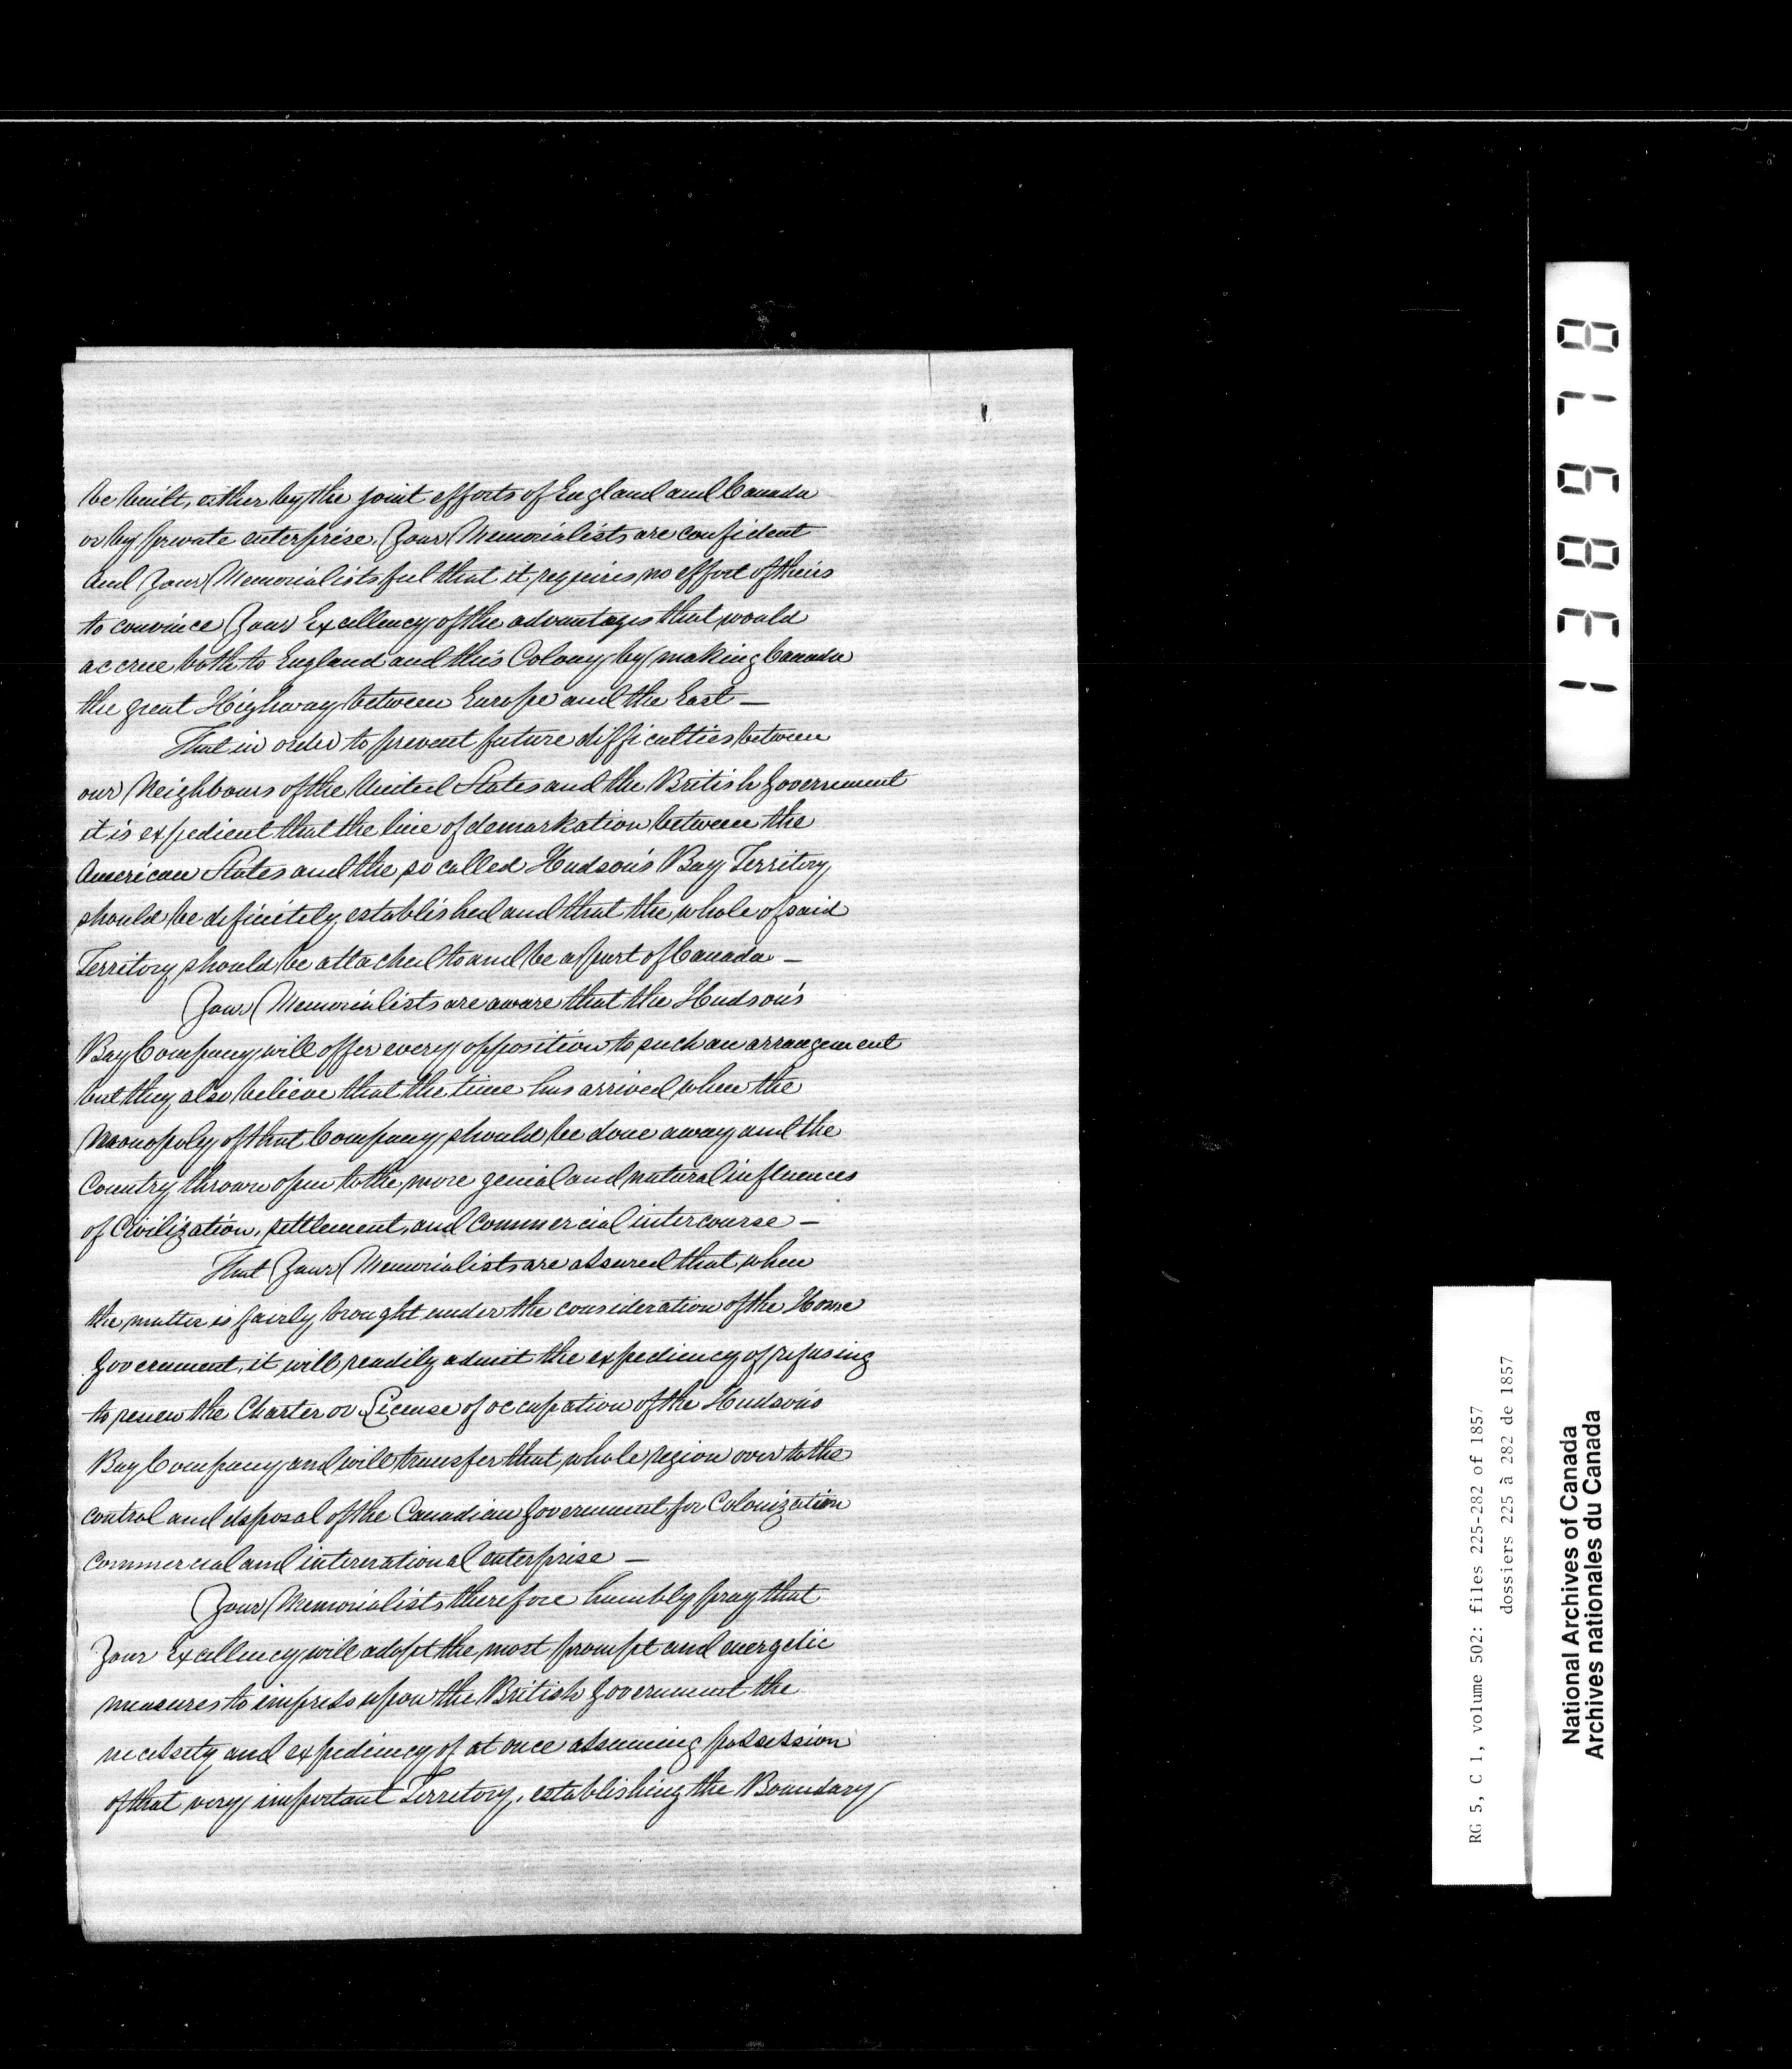 be built, either by the joint efforts of England and Canada
or by private enterprise. Your Memorialists are confident
And Your Memorialists feel that it requires no effort of theirs
to convince Your Excellency of the advantages that would
accrue both to England and this Colony by making Canada
the great Highway between Europe and the East —
That in order to prevent future difficulties between
our Neighbours of the United States and the British Government
it is expedient that the line of demarkation between the
American States and the so called Hudson's Bay Territory
should be definitely established and that the whole of said
Territory should be attached to and be a part of Canada —
Your Memorialists are aware that the Hudson's
Bay Company will offer every opposition to such an arrangement
but they also believe that the time has arrived when the
Monopoly of that Company should be done away and the
Country thrown open to the more genial and natural influences
of Civilization, settlement, and Commercial intercourse —
That Your Memorialists are assured that when
the matter is fairly brought under the consideration of the Home
Government, it will readily admit the expediency of refusing
to renew the Charter or License of occupation of the Hudson's
Bay Company and will transfer that whole region over to the
control and disposal of the Canadian Government for Colonization
Commercial and international enterprise —
Your Memorialists therefore humbly pray that
Your Excellency will adopt the most prompt and energetic
measures to impress upon the British Government the
necessity and expediency of at once assuming possession
of that very important Territory, establishing the Boundary
138978
RG 5, C 1, volume 502: files 225-282 of 1857
dossiers 225 à 282 de 1857
National Archives of Canada
Archives nationales du Canada